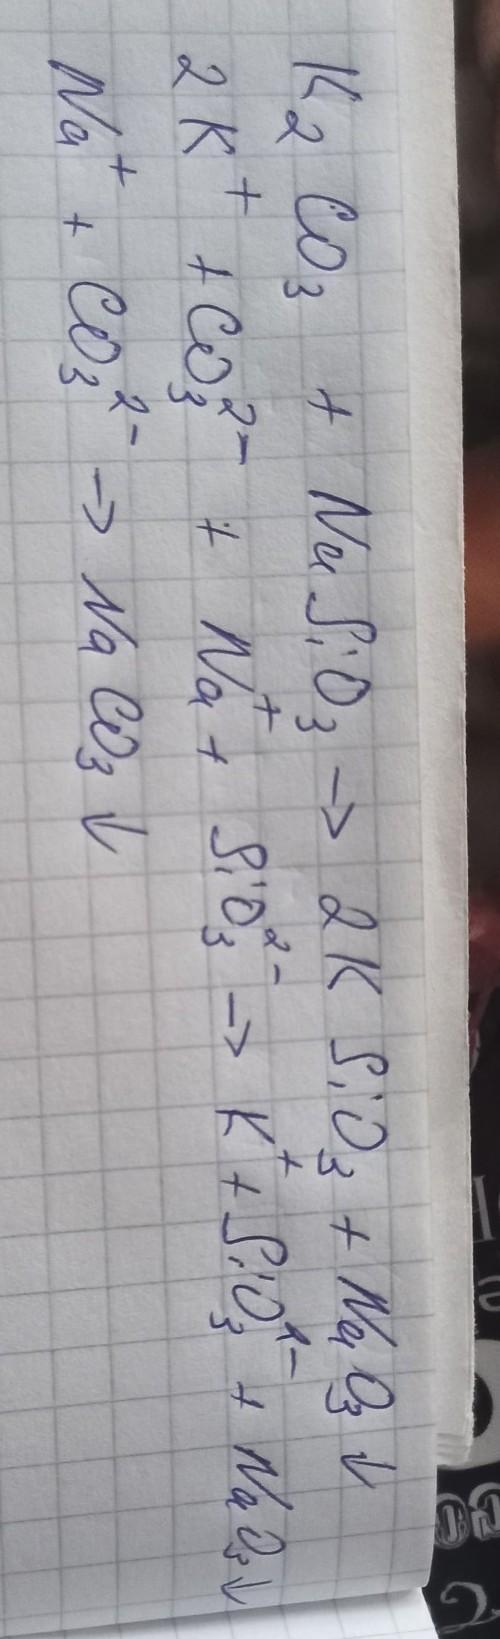 K₂CO₃ + NaSiO₃ → 2KSiO₃ + NaO₃↓
2K⁺ + CO₃²⁻ + Na⁺ + SiO₃²⁻ → K⁺ + SiO₃¹⁻ + NaO₃↓
Na⁺ + CO₃²⁻ → NaCO₃↓